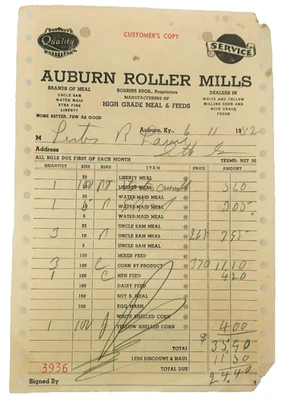 CUSTOMER'S COPY
Quality
SERVICE
AUBURN ROLLER MILLS
BRANDS OF MEAL
UNCLE SAM
WATER MAID
XTRA FINE
LIBERTY
NONE BETTER, FEW AS GOOD
ROBBINS BROS., Proprietors
MANUFACTURERS OF
HIGH GRADE MEAL & FEEDS
DEALERS IN
WHITE AND YELLOW
MILLING CORN AND
HIGH GRADE
FEEDS
Auburn, Ky. 6 11 1952
M
Address
ALL BILLS DUE FIRST OF EACH MONTH TERMS: NET 30
QUANTITY SIZE KIND ITEM PRICE AMOUNT
25 LIBERTY MEAL
1 100 LIBERTY MEAL 560
25 WATER MAID MEAL
1 WATER MAID MEAL 205
WATER MAID MEAL
25 UNCLE SAM MEAL
3 UNCLE SAM MEAL 265 795
5 UNCLE SAM MEAL
MIXED FEED
3 C CORN BY-PRODUCT 370 11,10
1 C HEN FEED 420
DAIRY FEED
SOY B. MEAL
EGG MASH
WHITE SHELLED CORN
1 100 YELLOW SHELLED CORN 4.00
TOTAL $ 35,90
3936 LESS DISCOUNT & HAUL 11.50
TOTAL DUE 24.40
Signed By